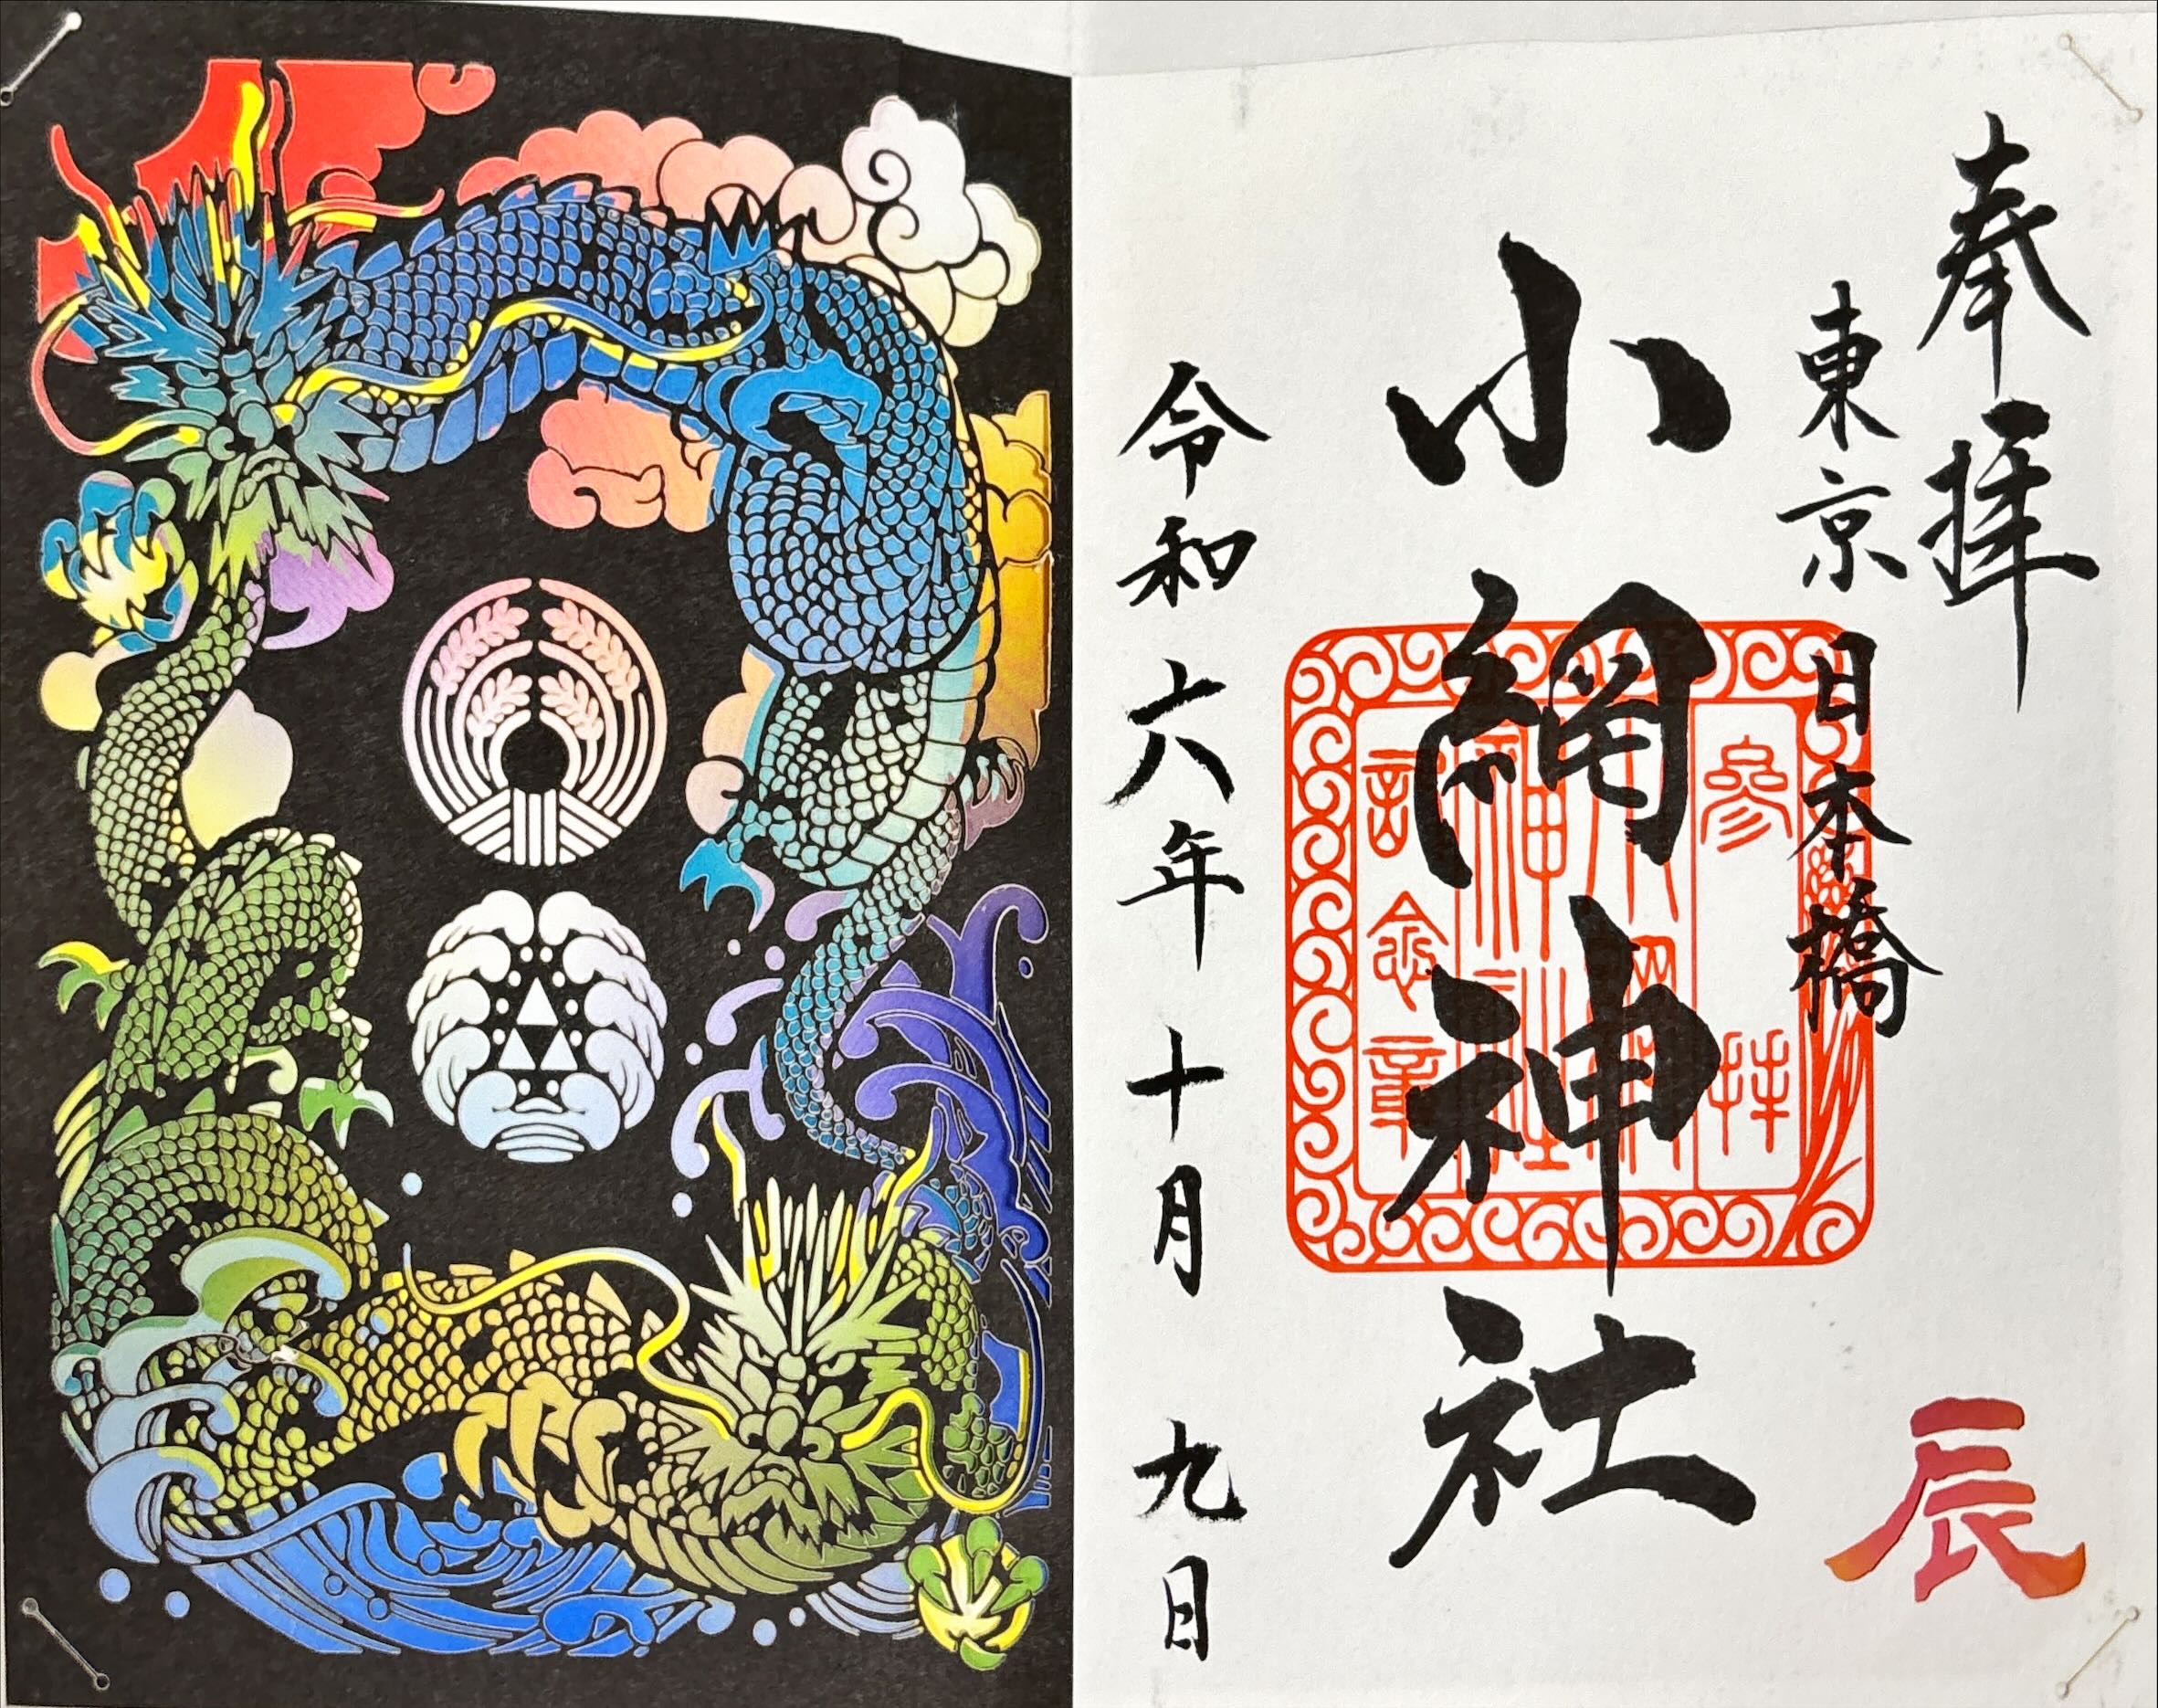 奉拝
東京
日本橋
小網神社
参拝
小網
神社
記念章
令和六年十月九日
辰